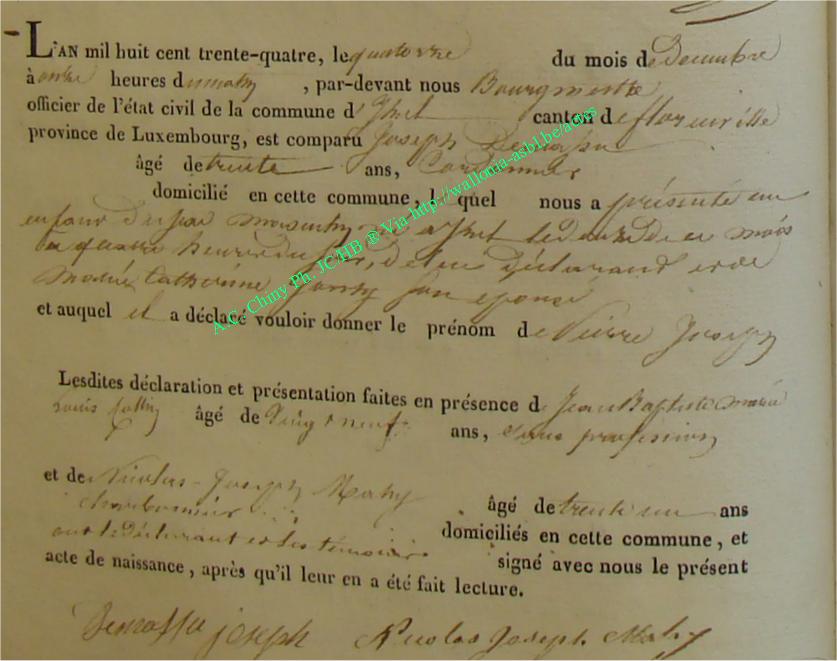 L'AN mil huit cent trente-quatre, le quatorze du mois de Decembre
à onze heures du matin, par-devant nous Bourgmestre
officier de l'état civil de la commune d'Izel canton de florenville
province de Luxembourg, est comparu Joseph
âgé de trente ans, Cordonnier
domicilié en cette commune, lequel nous a présenté un
enfant du sexe masculin né a Izel le douze de ce mois
a quatre heures du soir, de lui Déclarant et de
Marie Catherine Jamin son epouse
et auquel il a déclaré vouloir donner le prénom de Pierre Joseph
Lesdites déclaration et présentation faites en présence de Jean Baptiste marie
Louis âgé de vingt neuf ans, sans profession
et de Nicolas-Joseph Mahy âgé de trente un ans
charbonnier domiciliés en cette commune, et
ont le déclarant et les témoins signé avec nous le présent
acte de naissance, après qu'il leur en a été fait lecture.
joseph Nicolas Joseph Mahy
A.C. Chiny Ph. JC/HB ® Via http://wallonia-asbl.be/actes